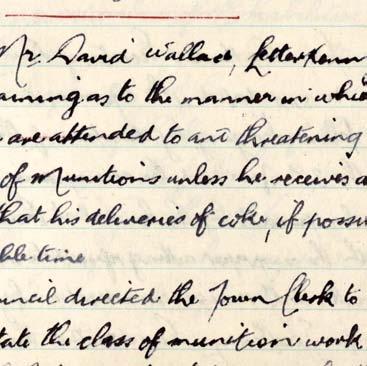 Mr. David Wallace, Letterkenn
aining as to the manner in whic
are attended to and threatening
of Munitions unless he receives a
that his deliveries of coke, if possi
ble time
uncil directed the Town Clerk to
tate the class of munition work